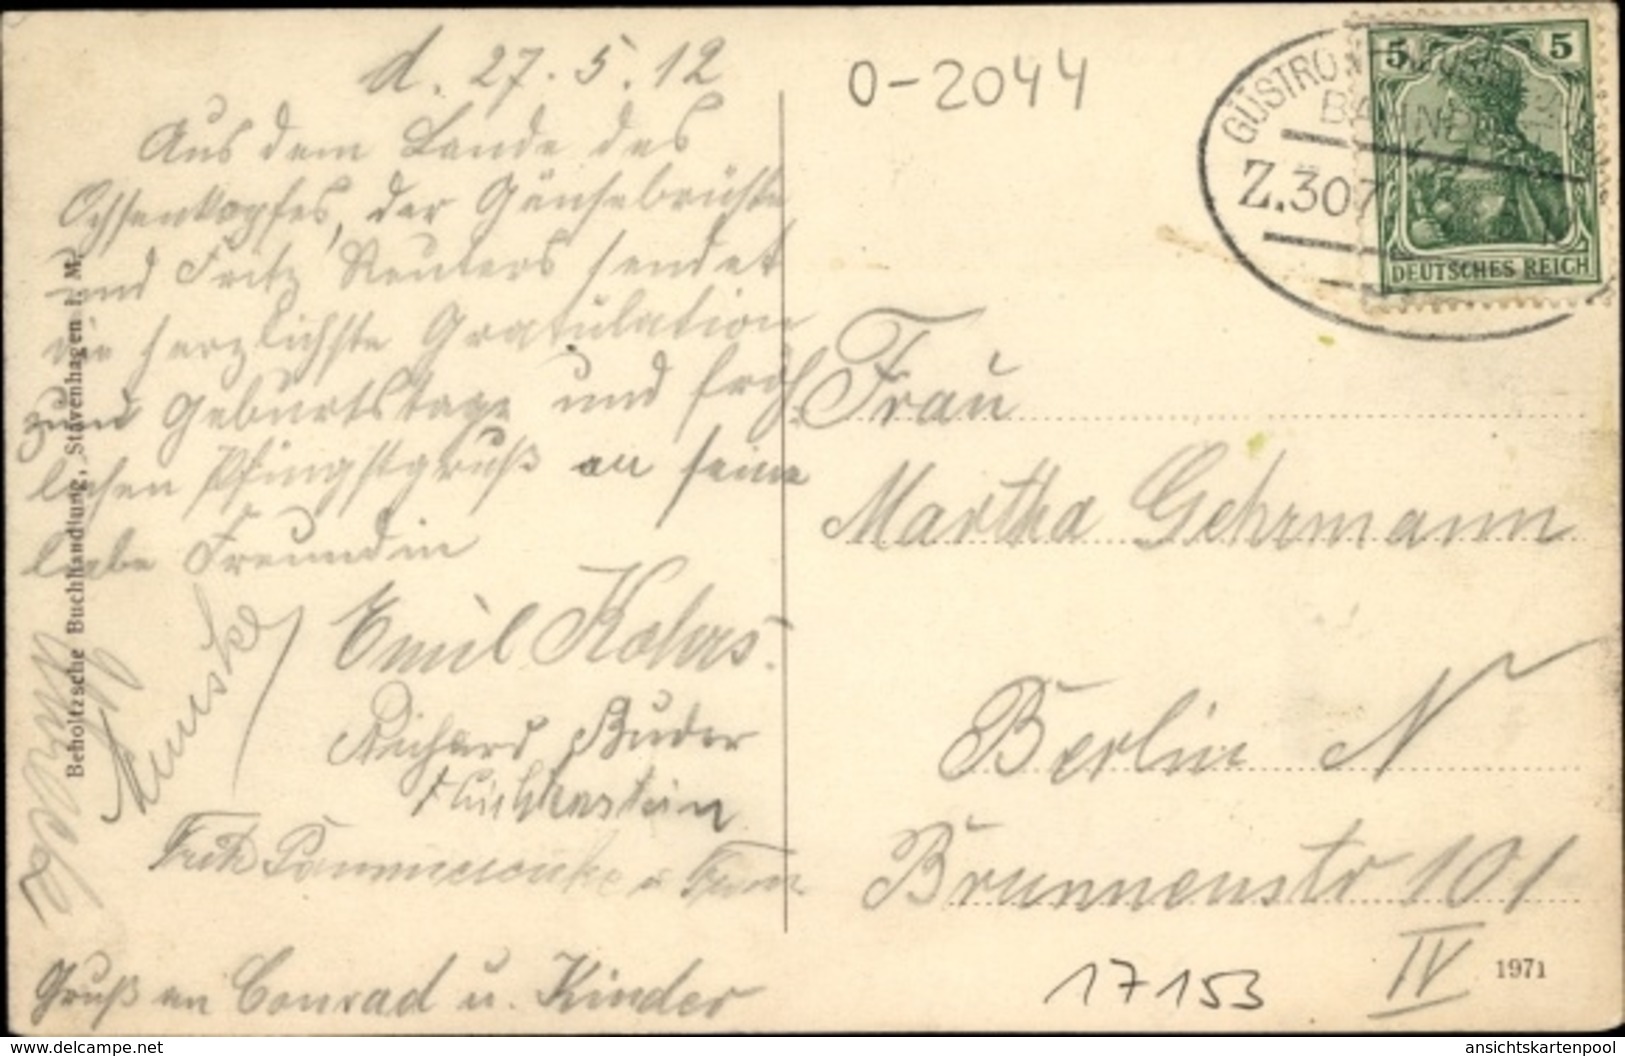 d. 27.5.12
Aus dem Lande des
Ochsenkopfes, der Gänsebrüste
und Fritz Reuters sendet
die herzlichste Gratulation
zum Geburtstage und fröh-
lichen Pfingstgruß an seine
liebe Freundin
Emil Kohrs.
Richard Buder
Fritz
Gruß an Conrad u. Kinder
Beholtzsche Buchhandlung, Stavenhagen i. M.
O-2044
GÜSTRO
BA
Z.307
5 5
DEUTSCHES REICH
Frau
Martha Gehrmann
Berlin N
Brunnenstr 101
IV
17153
1971
www.delcampe.net
ansichtskartenpool